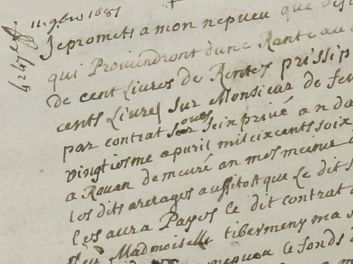 11. 9bre 1681
Je promets a mon nepueu que
qui Prouiendront dune Rante au
de cent Liures de Rentes prissip
cents Liures sur Monsieur de
par contrat soubs sein priué an da
vingtiesme apuril mil cincents soix
a Rouan demeuré an mes meins
les dits arerages aussitost que le dit S
les aura Payes le dit contrat
feu Madmoiselle tibermeny ma
nepueu le fonds